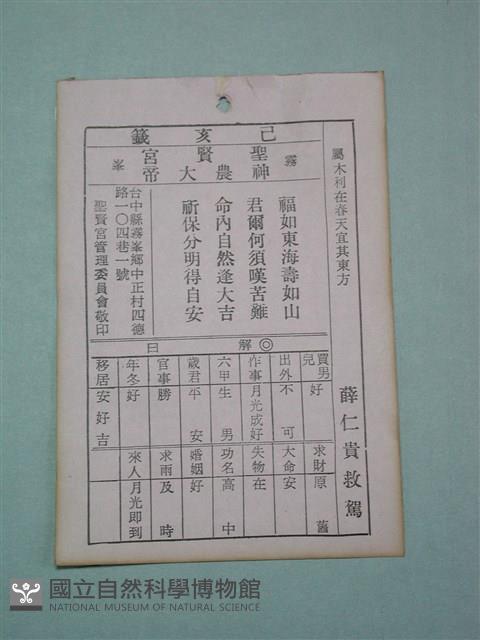 己亥籤
霧峯聖賢宮
神農大帝
屬木利在春天宜其東方
薛仁貴救駕
福如東海壽如山
君爾何須嘆苦難
命內自然逢大吉
祈保分明得自安
台中縣霧峯鄉中正村四德
路一〇四巷一號
聖賢宮管理委員會敬印
◎解曰
買男兒 好
求財 原舊
出外 不可
大命 安
作事 月光成好
失物 在
六甲 生男
功名 高中
歲君 平安
婚姻 好
官事 勝
求雨 及時
年冬 好
來人 月光即到
移居 安好吉
國立自然科學博物館
NATIONAL MUSEUM OF NATURAL SCIENCE